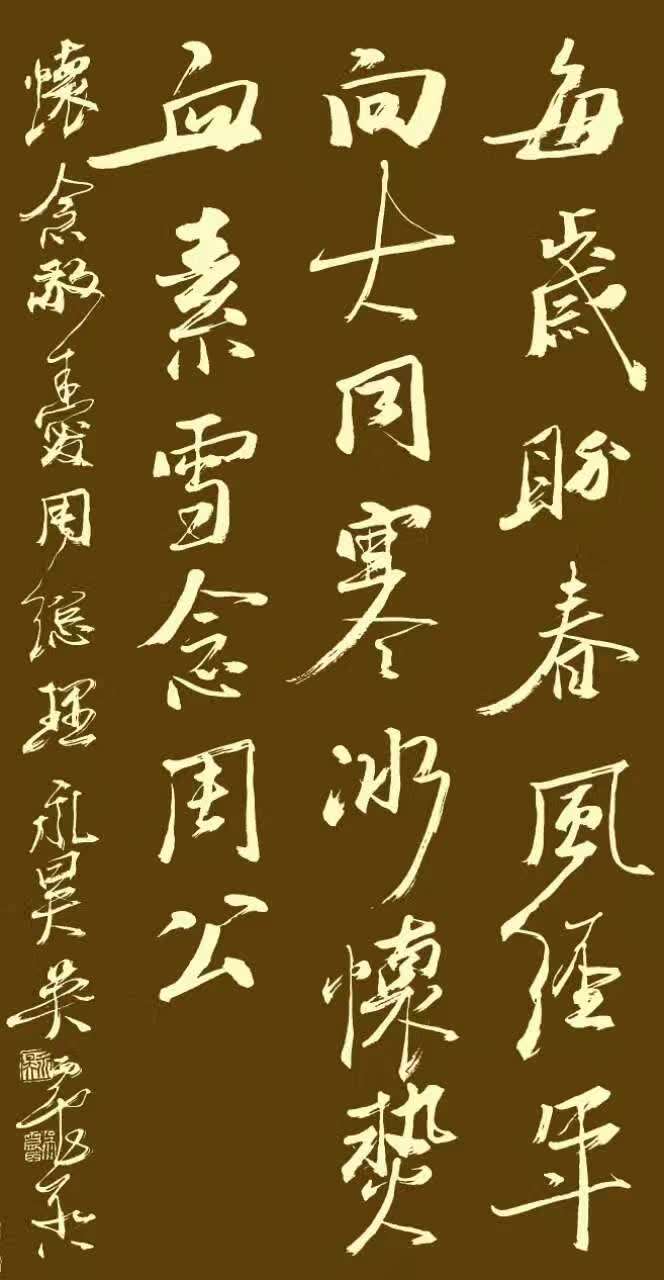 每歲盼春風經年
向大同寒冰懷熱
血素雪念周公
懷念敬愛周總理 昊吳